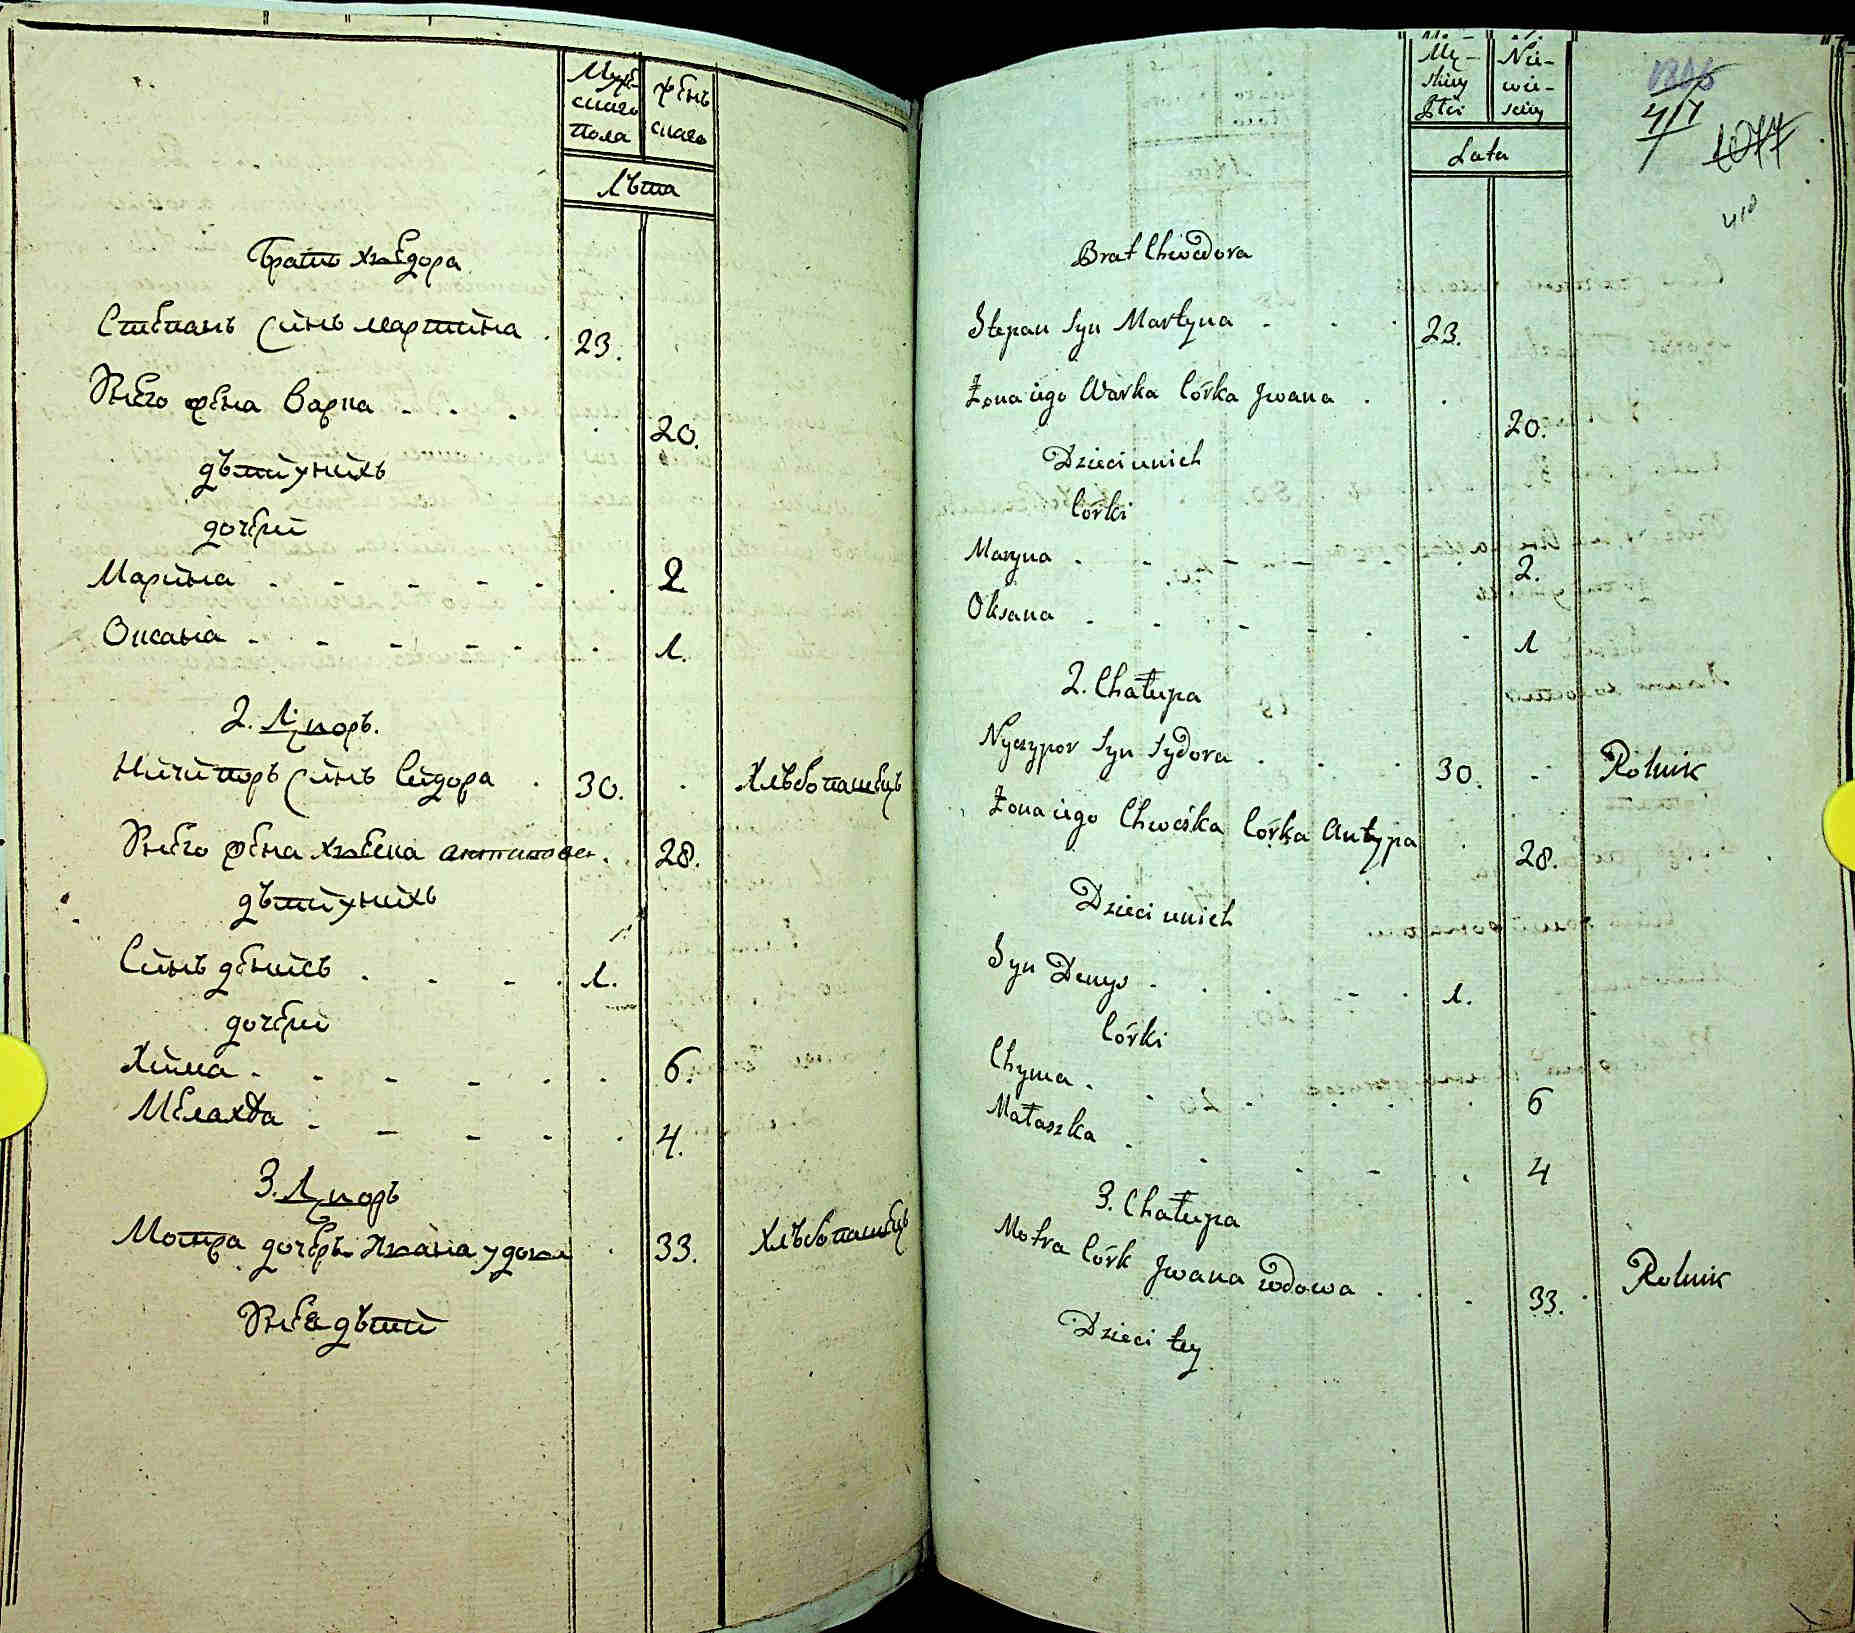 Муже-
скаго
пола
жень
скаго
Лѣта
Братъ Хведора
Степанъ Синъ Мартина 23.
У него жена Варка 20.
дѣти у нихъ
дочери
Марина 2
Оксана 1.
2. Дворъ.
Ничипоръ Синъ Сидора 30. Хлѣбопашецъ
У него жена Хвеска антипова 28.
дѣти у нихъ
Синъ денисъ 1.
дочери
Хима 6.
Мелашка 4.
3. Дворъ
Мотра дочерь Ивана удова 33. Хлѣбопашецъ
У нее дѣти
Mę-
skiey
Płci
Nie-
wie-
sciey
Lata
1077
418
Brat Chwedora
Stepan Syn Martyna 23.
Żona iego Warka Córka Jwana 20.
Dzieci u nich
Córki
Maryna 2.
Oksana 1
2. Chałupa
Nyczypor Syn Sydora 30. Rolnik
Żona iego Chweśka Córka Antypa 28.
Dzieci u nich
Syn Denys 1.
Córki
Chyma 6
Małaszka 4
3. Chałupa
Motra Córk Jwana wdowa 33. Rolnik
Dzieci tey